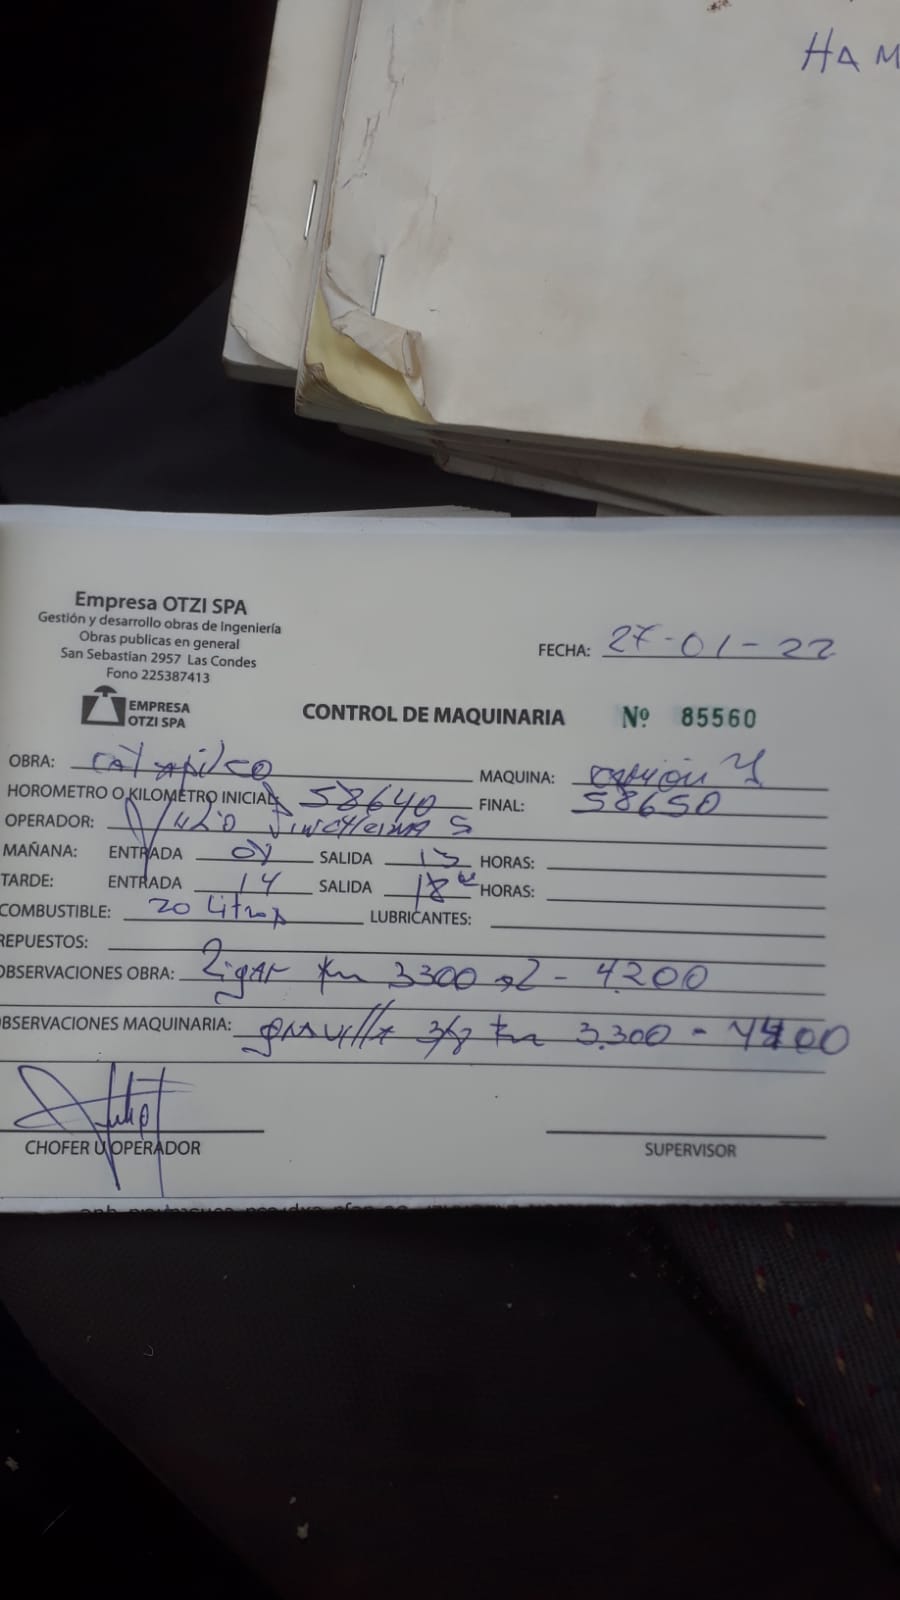 HAM
Empresa OTZI SPA
Gestión y desarrollo obras de Ingeniería
Obras publicas en general
San Sebastian 2957 Las Condes
Fono 225387413
EMPRESA
OTZI SPA
FECHA: 27-01-22
CONTROL DE MAQUINARIA Nº 85560
OBRA: catapilco MAQUINA: camión
HOROMETRO O KILOMETRO INICIAL 58640 FINAL: 58650
OPERADOR:
MAÑANA: ENTRADA 08 SALIDA 13 HORAS:
TARDE: ENTRADA 14 SALIDA 18 HORAS:
COMBUSTIBLE: 20 Litros LUBRICANTES:
REPUESTOS:
OBSERVACIONES OBRA: km 3300 al - 4.200
OBSERVACIONES MAQUINARIA: gravilla 3/8 km 3.300 -
CHOFER U OPERADOR SUPERVISOR